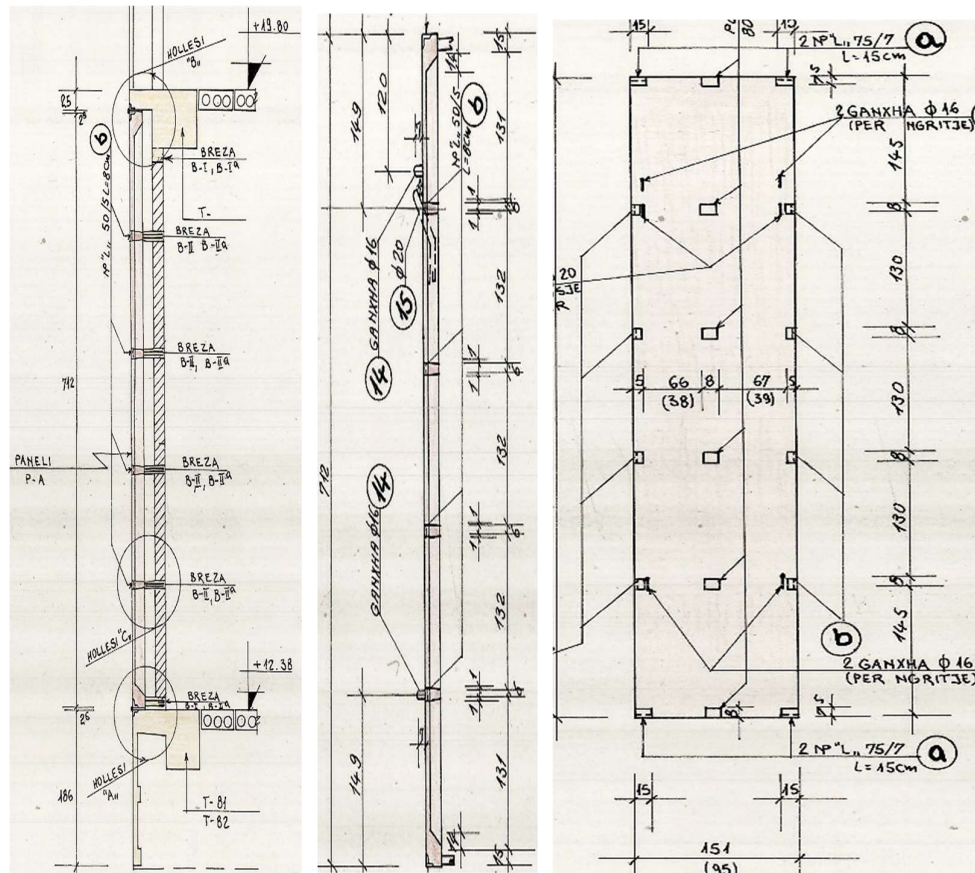 HOLLESI
"B"
+19.80
25
25
6
NP"L" 50/5 L=80m
BREZA
B-I, B-Iª
T-
BREZA
B-II B-IIª
BREZA
B-II, B-IIª
742
PANELI
P-A
BREZA
B-II, B-IIª
BREZA
B-II, B-IIª
HOLLESI "C"
+12.38
BREZA
B-I, B-Iª
25
HOLLESI
"A"
186
T-81
T-82
15
14
120
149
5
NP"L" 50/5
L=8cm
6
131
1
1
6
GANXHA ϕ16
14
15
ϕ20
132
1
1
6
132
712
GANXHA ϕ16
14
1
1
6
132
1
1
6
149
5
131
14
15
15
80
15
2 NP"L" 75/7
L=15cm
a
5
2 GANXHA ϕ16
(PER NGRITJE)
145
8
20
SJE
R
130
8
5
66
(38)
8
67
(39)
5
130
8
130
8
b
145
2 GANXHA ϕ16
(PER NGRITJE)
8
5
2 NP"L" 75/7
L=15cm
a
15
15
151
(95)